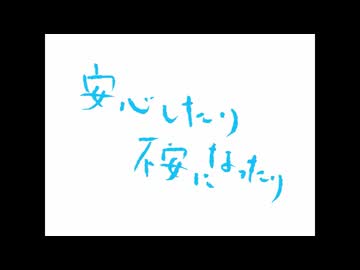 安心したり
不安になったり